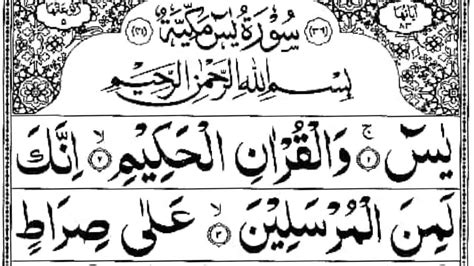 اٰيَاتُهَا ٨٣
(٣٦) سُوْرَةُ يٰسٓ مَكِّيَّةٌ (٤١)
رُكُوْعَاتُهَا ٥
بِسْمِ اللهِ الرَّحْمٰنِ الرَّحِيْمِ
يٰسٓ ۚ ۝١ وَالْقُرْاٰنِ الْحَكِيْمِ ۙ ۝٢ اِنَّكَ
لَمِنَ الْمُرْسَلِيْنَ ۙ ۝٣ عَلٰى صِرَاطٍ